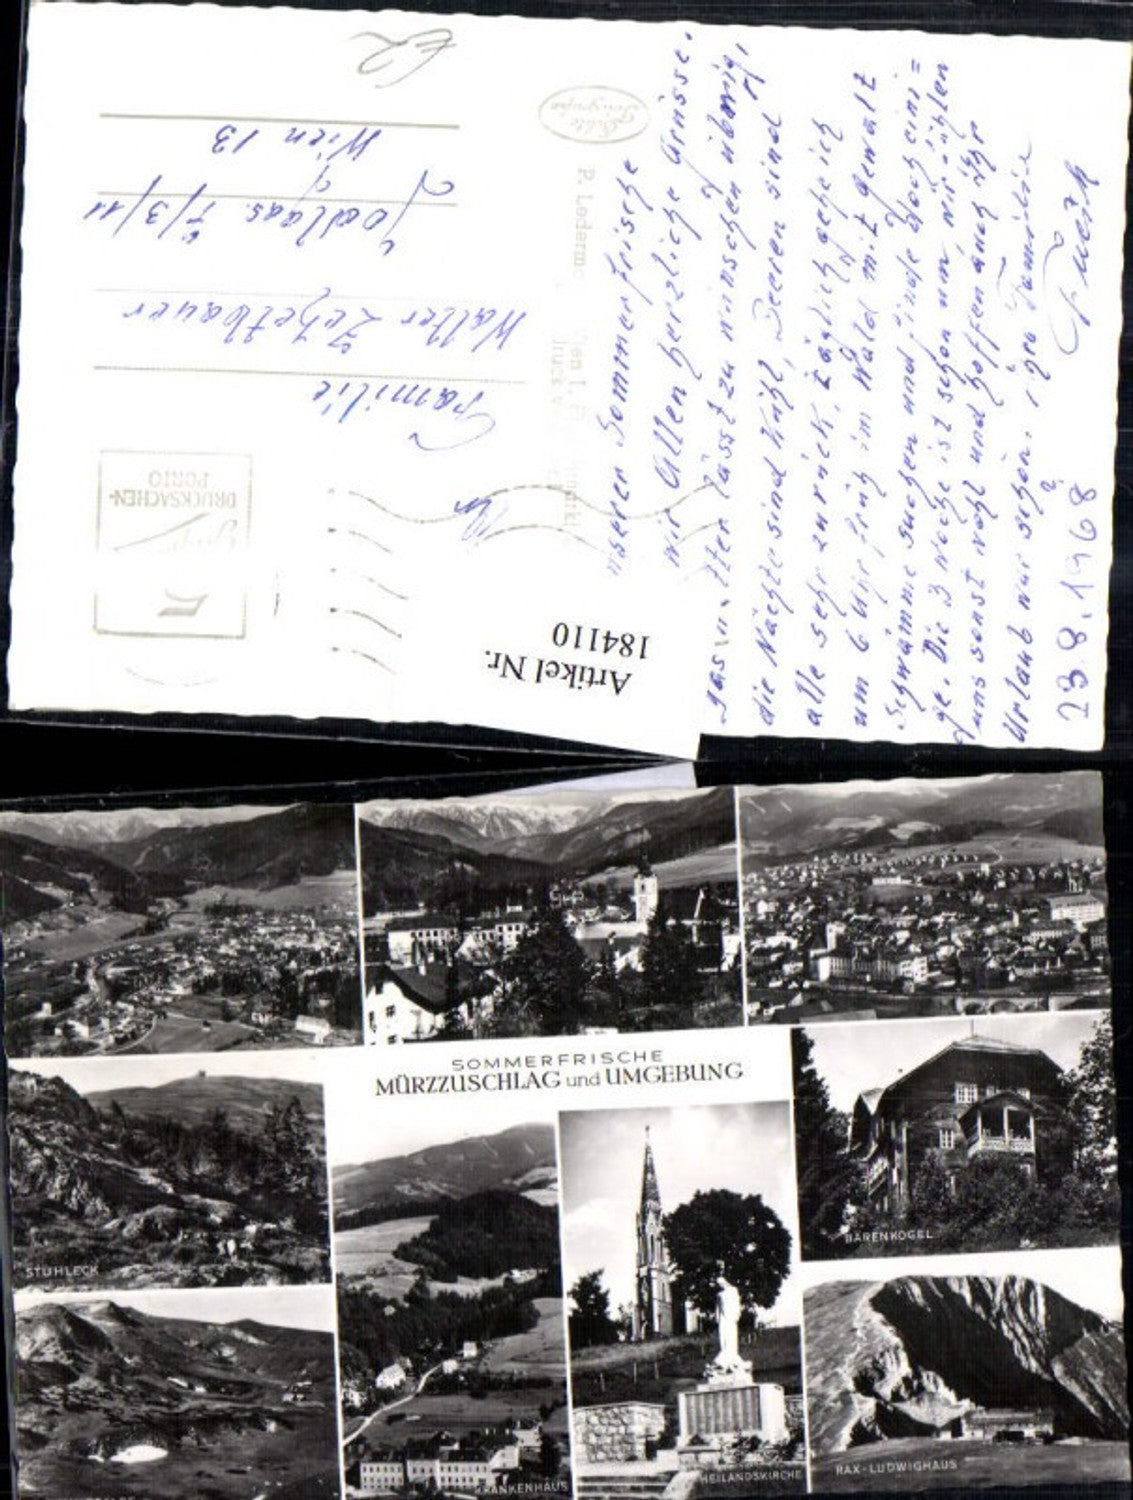 €2
Echte
Fotografie
Familie
Walter Zehetbauer
Jodlgas. 7/3/11
Wien 13
DRUCKSACHEN-
PORTO
P. Lederm
Artikel Nr.
184110
unserer Sommerfrische
wir Allen herzliche Grüsse.
lässt zu wünschen übrig,
die Nächte sind kühl, Beeren sind
alle sehr zurück, täglich geh ich
um 6 Uhr früh im Wald mit Gewalt
Schwämme suchen und finde doch eini=
ge. Die 3 Woche ist schon um wir fühlen
uns sonst wohl und hoffen auch ihr
Urlaub war schön.
Familie
23.8.1968
SOMMERFRISCHE
MÜRZZUSCHLAG und UMGEBUNG
STUHLECK
BÄRENKOGEL
KRANKENHAUS
HEILANDSKIRCHE
RAX-LUDWIGHAUS